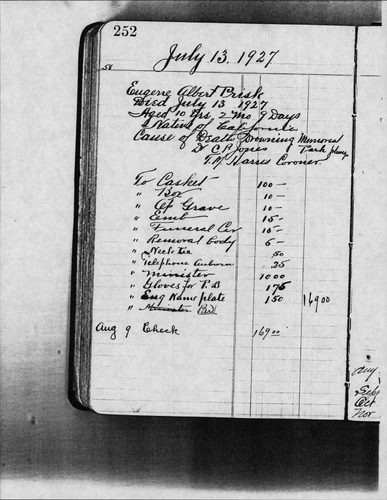 252
July 13. 1927
58
Eugene Albert Prisk
Died July 13 1927
Aged 10 Yrs 2 Mo 9 Days
Native of California
Cause of Death Drowning Memorial
Park
Dr C P Jones
T. M Harris Coroner
To Casket 100 —
" Box 10 —
" Of Grave 10 —
" Emb 15 —
" Funeral Car 15 —
" Removal body 5 —
" Neck tie .50
" Telephone Auburn .25
" Minister 10 00
" Gloves for P. B 1 75
" Eng Name plate 1 50 169 00
" Minister Pd
Aug 9 Check 169 00
Aug
Feb
Oct
Nov